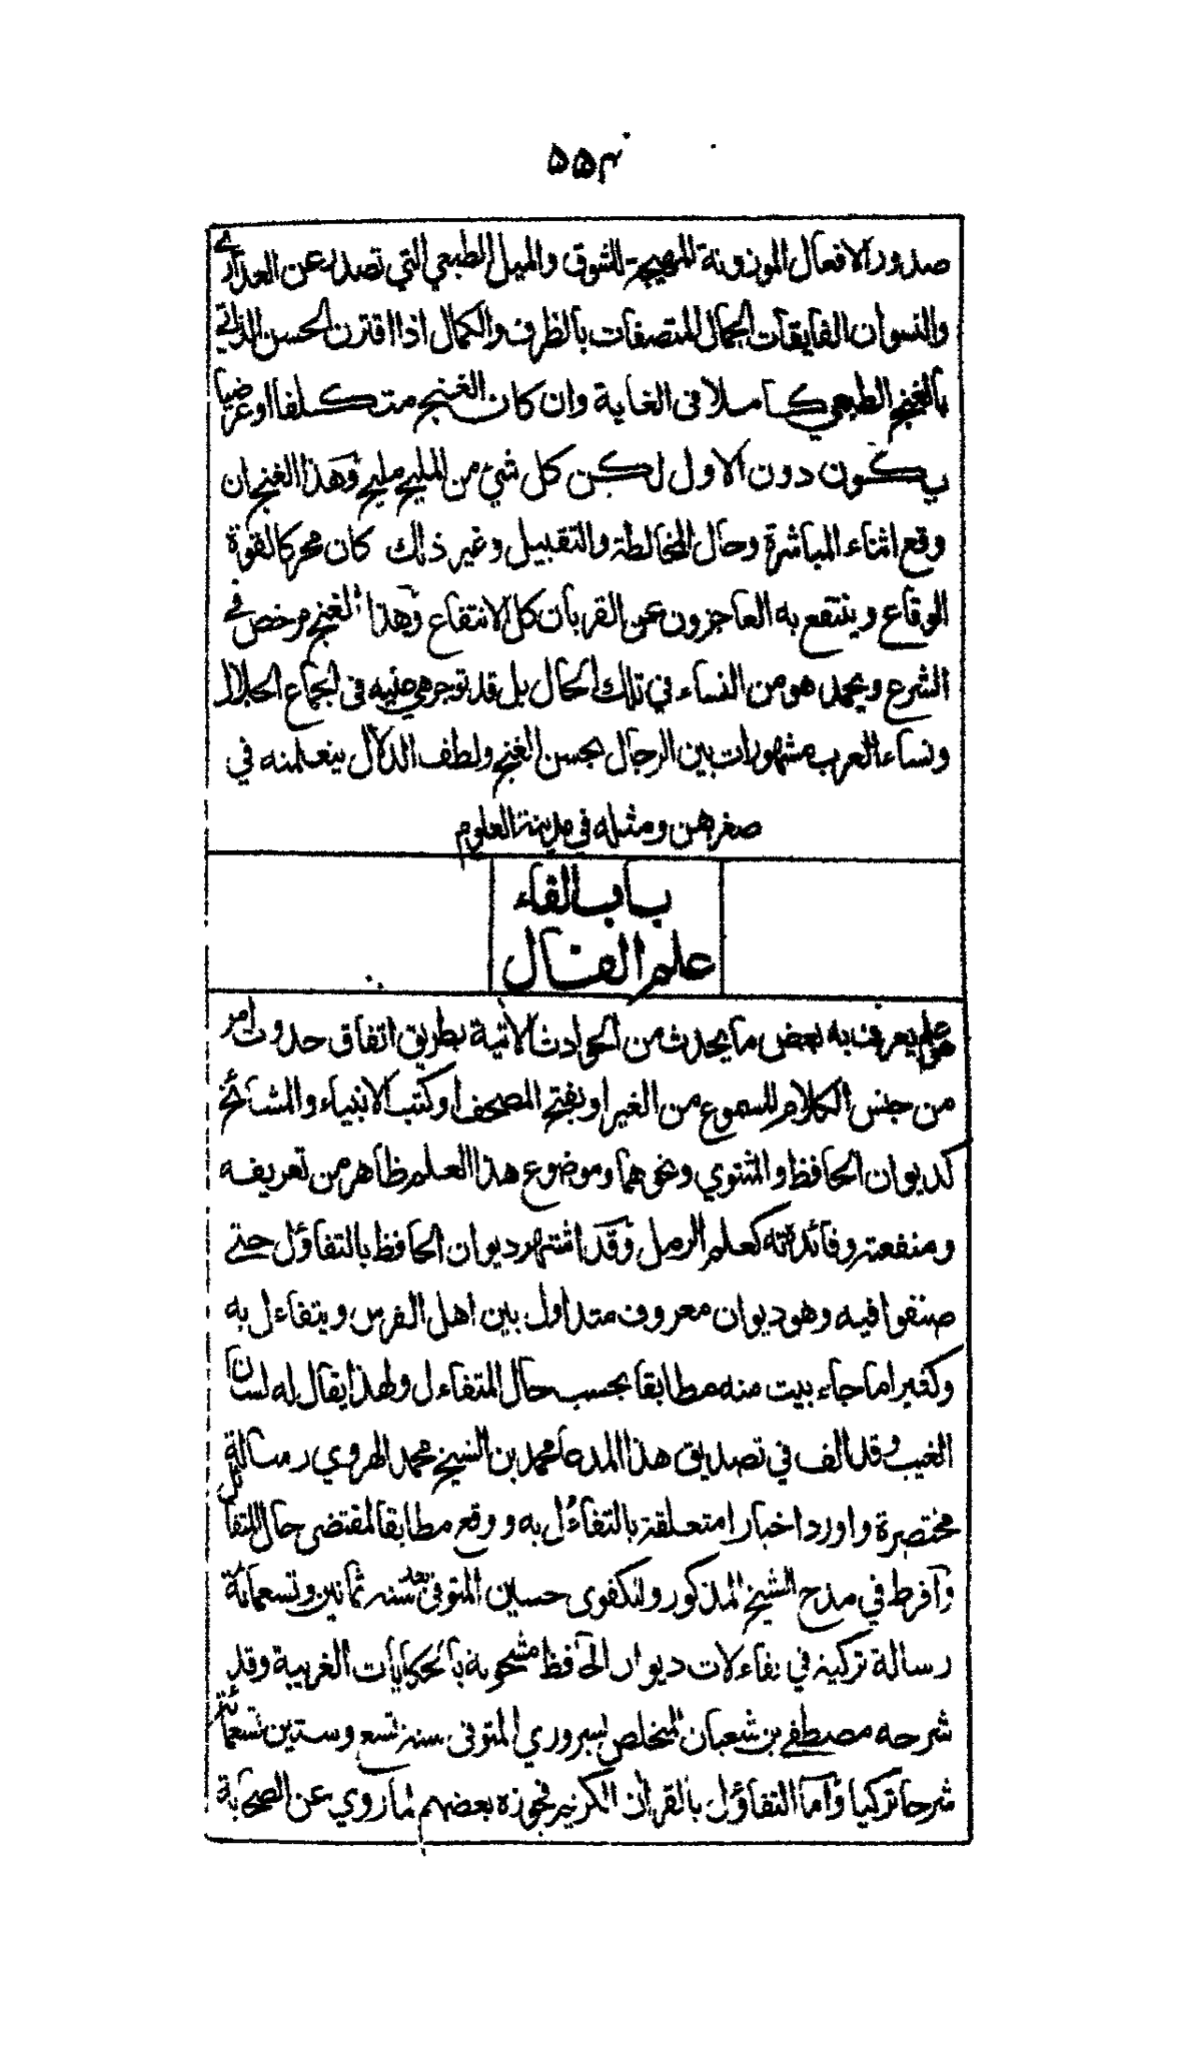 ۵۵۴
صدور الافعال الموزونة المهيجة للشوق والميل الطبعي التي تصدر عن العذارى
والنسوان الفايقات الجمال المتصفات بالظرف والكمال اذا اقترن الحسن الذاتي
بالغنج الطبعي كاملا في الغاية وان كان الغنج متكلفا اوعرضيا
يكون دون الاول لكن كل شئ من المليح مليح وهذا الغنج ان
وقع اثناء المباشرة وحال المخالطة والتقبيل وغير ذلك كان محركا لقوة
الوقاع وينتفع به العاجزون عن القربان كل الانتفاع وهذا الغنج مرخص في
الشرع ويحمد هو من النساء في تلك الحال بل قد توجر هي عليه في الجماع الحلال
ونساء العرب مشهورات بين الرجال بحسن الغنج ولطف الدلال يتعلمنه في
صغرهن ومثله في مدينة العلوم
باب الفاء
علم الفال
هو علم يعرف به بعض ما يحدث من الحوادث الأتية بطريق اتفاق حدوث امر
من جنس الكلام المسموع من الغير او بفتح المصحف او كتب الانبياء والمشائخ
كديوان الحافظ والمثنوي ونحوهما وموضوع هذا العلم ظاهر من تعريفه
ومنفعته وفائدته كعلم الرمل وقد اشتهر ديوان الحافظ بالتفاؤل حتى
صنفوا فيه وهو ديوان معروف متداول بين اهل الفرس ويتفاءل به
وكثيرا ما جاء بيت منه مطابقا بحسب حال المتفاءل ولهذا يقال له لسان
الغيب وقد الف في تصديق هذا المدعا محمد بن الشيخ محمد الهروي رسالة
مختصرة واورد اخبارا متعلقة بالتفاءل به ووقع مطابقا لمقتضى حال المتفائل
وافرط في مدح الشيخ المذكور وللكفوى حسين المتوفى بعد سنه ثمانين وتسعمائة
رسالة تركية في تفاءلات ديوان الحافظ مشحونة بالحكايات الغريبة وقد
شرحه مصطفى بن شعبان المتخلص بسروري المتوفى سنة تسع وستين تسعمائة
شرحا تركيا وأما التفاؤل بالقران الكريم فجوزه بعضهم لما روي عن الصحابة